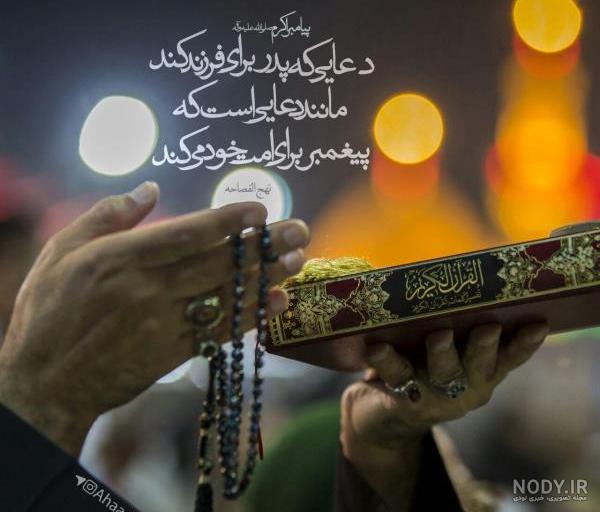 پیامبر اکرم صلی‌الله علیه وآله
دعایی که پدر برای فرزند کند
مانند دعایی است که
پیغمبر برای امت خود می کند
نهج الفصاحه
القرآن الكريم
@Ahaa
NODY.IR
مجله تصویری، خبری نودی